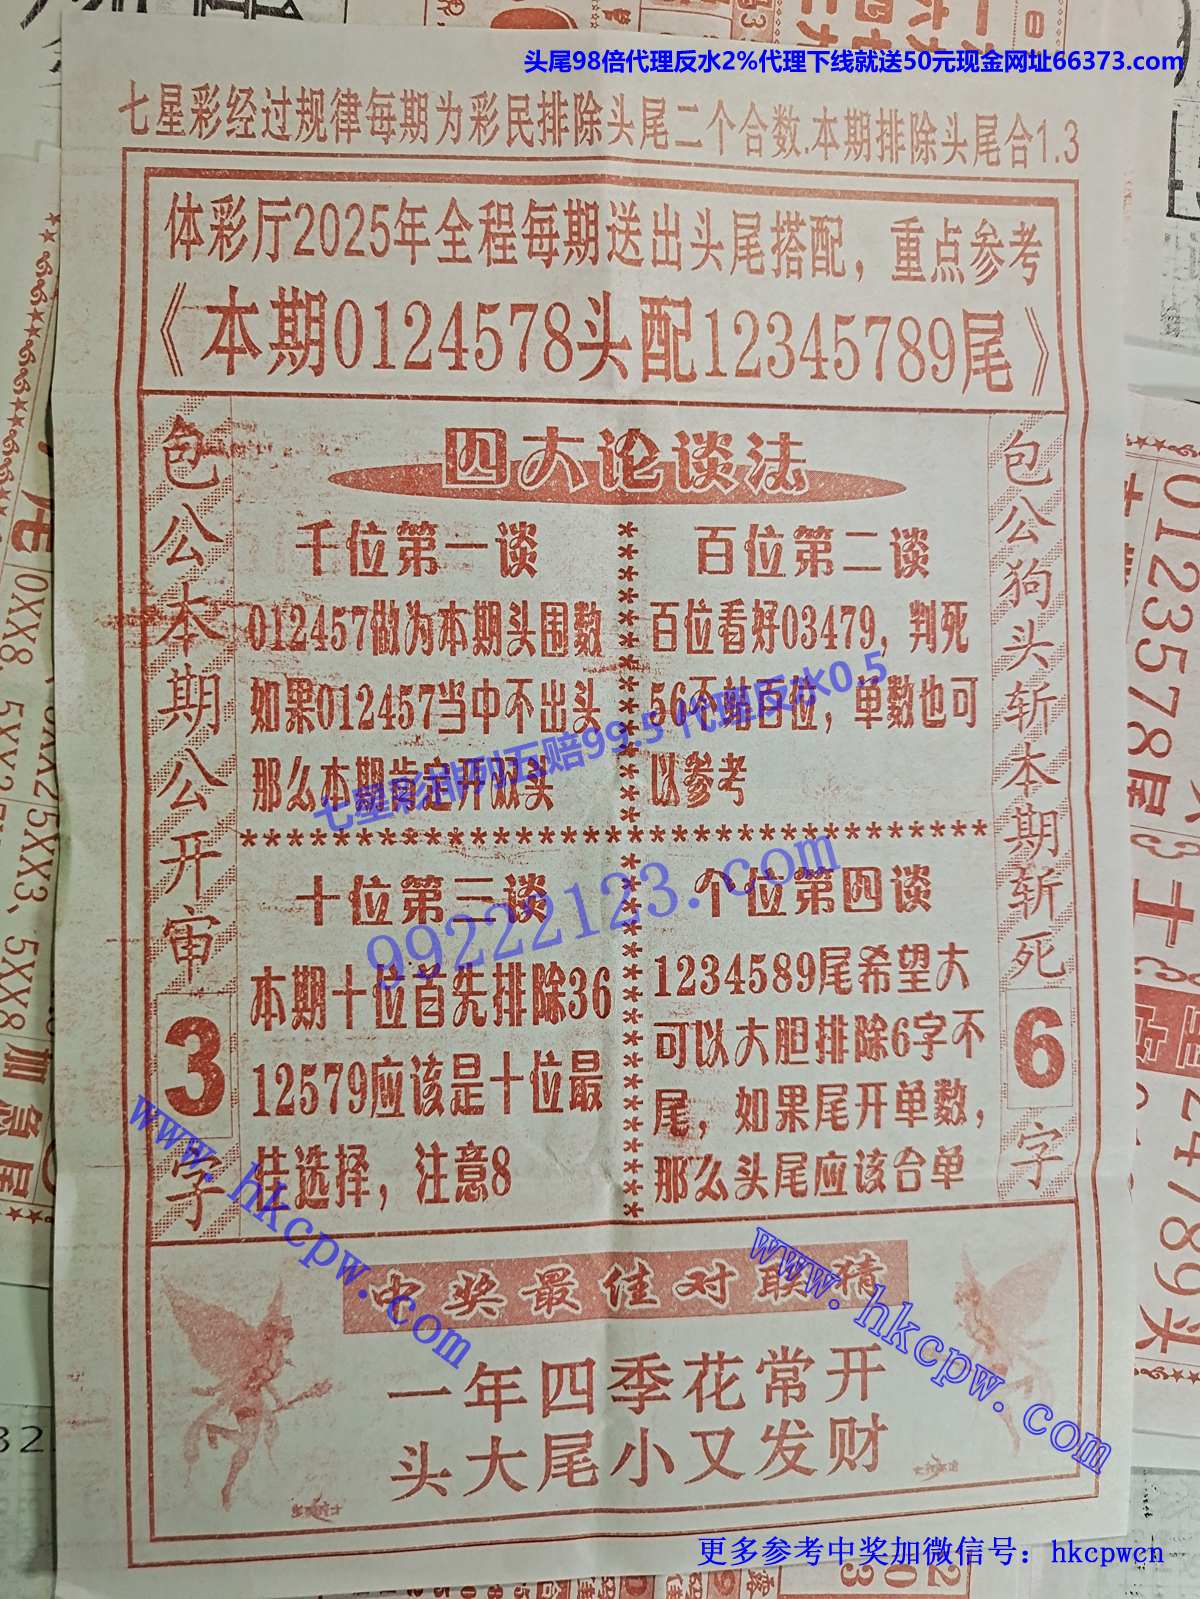 头尾98倍代理反水2%代理下线就送50元现金网址66373.com
七星彩经过规律每期为彩民排除头尾二个合数.本期排除头尾合1.3
体彩厅2025年全程每期送出头尾搭配，重点参考
《本期0124578头配12345789尾》
包公本期公开审3字
四大论谈法
千位第一谈
012457做为本期头围数
如果012457当中不出头
那么本期肯定开双头
百位第二谈
百位看好03479，判死
56不站百位，单数也可
以参考
七星彩排列五赔99.5 代理反水0.5
99222123.com
十位第三谈
本期十位首先排除36
12579应该是十位最
佳选择，注意8
个位第四谈
1234589尾希望大
可以大胆排除6字不
尾，如果尾开单数，
那么头尾应该合单
包公狗头斩本期斩死6字
www.hkcpw.com
www.hkcpw.com
中奖最佳对联猜
一年四季花常开
头大尾小又发财
更多参考中奖加微信号：hkcpwcn
0123578尾
24789头
0XX8、5XX2
5XX3、5XX8加急尾